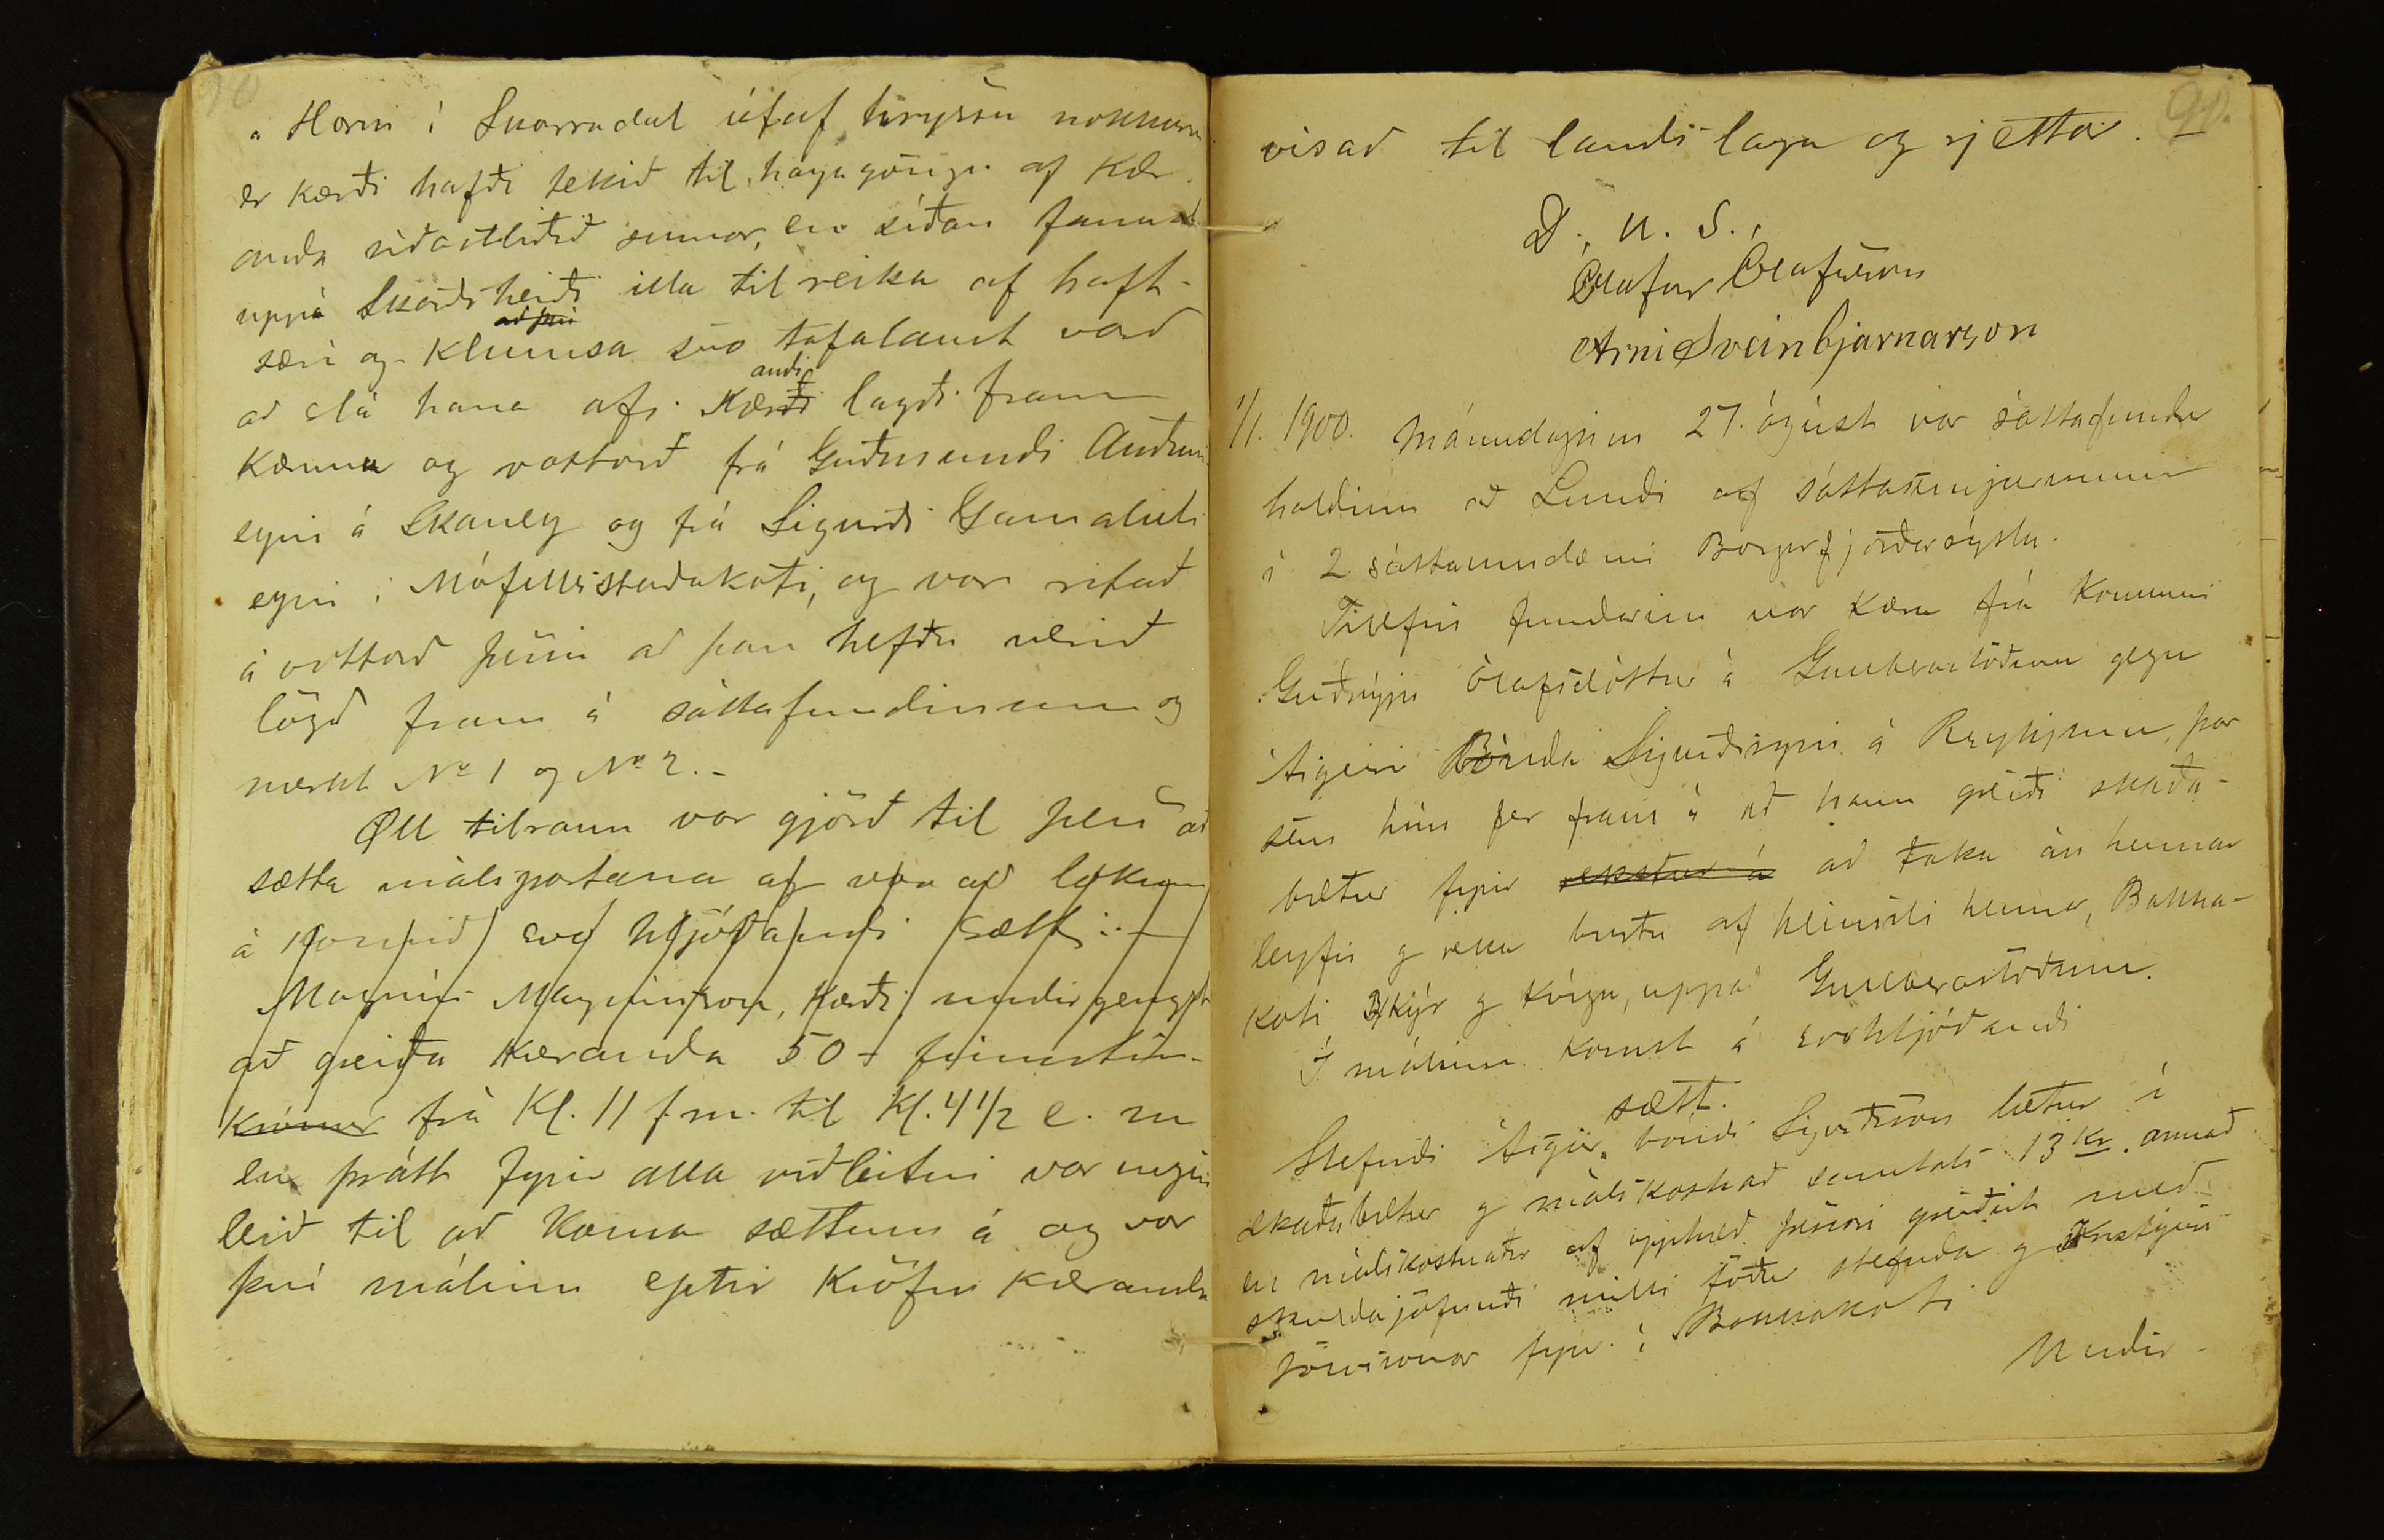 90
á Horni í Skorradal útaf hryssu nokkurri
er kærði hafði tekið til hagagöngu af kær
anda síðastliðið sumar, en síðan fannst
uppá Skarðsheiði illa til reika af haft-
særi og klumsa svo tafalaust varð
að því
að slá hana af. Kærði lagði fram
andi
kæruna og vottorð frá Guðmundi Auðuns
syni á Skáney og frá Sigurði Gamalíels
syni í Mófellsstaðakoti, og var ritað
á vottorð þessi að þau hefðu verið
lögð fram á sáttafundinum og
merkt No 1 og No 2. -
Öll tilraun var gjörð til þess að
sætta málspartana og var að lokum
á komin svo hljóðandi sætt: -
Magnús Magnússon, kærði undirgengst
að greiða kæranda 50 - fimmtíu -
krónur frá Kl. 11 f.m. til Kl. 4 1/2 e. m
en þrátt fyrir alla viðleitni var engin
leið til að koma sættum á og var
því málinu eptir kröfu kæranda
90.
vísað til landslaga og rjettar. -
D. u. S.,
Ólafur Ólafsson
Árni Sveinbjarnarson
1/1. 1900. Mánudaginn 27. ágúst var sáttafundur
haldinn að Lundi af sáttasemjurunum
í 2. sáttaumdæmi Borgarfjarðarsýslu.
Tilefni fundarins var kæra frá konunni
Guðnýju Ólafsdóttur á Gullberastöðum gegn
Ásgeiri Bónda Sigurðssyni á Reykjum, þar
sem hún fer fram á að hann greiði skaða-
bætur fyrir rekstur á að taka án hennar
leyfis og reka burtu af heimili hennar, Bakka-
koti 3 kýr og kvígu, uppað Gullberastöðum.
Í málinu komst á svohljóðandi
sætt.
Stefndi Ásgeir bóndi Sigurðsson lætur í
skaðabætur og málskostnað samtals 13 Kr. annað
en málskostnaðr af upphæð þessari greiðist með
skuldajöfnuði milli föður stefnda og Kristjáns
Jónssonar fyrr. í Bakkakoti
Undir -